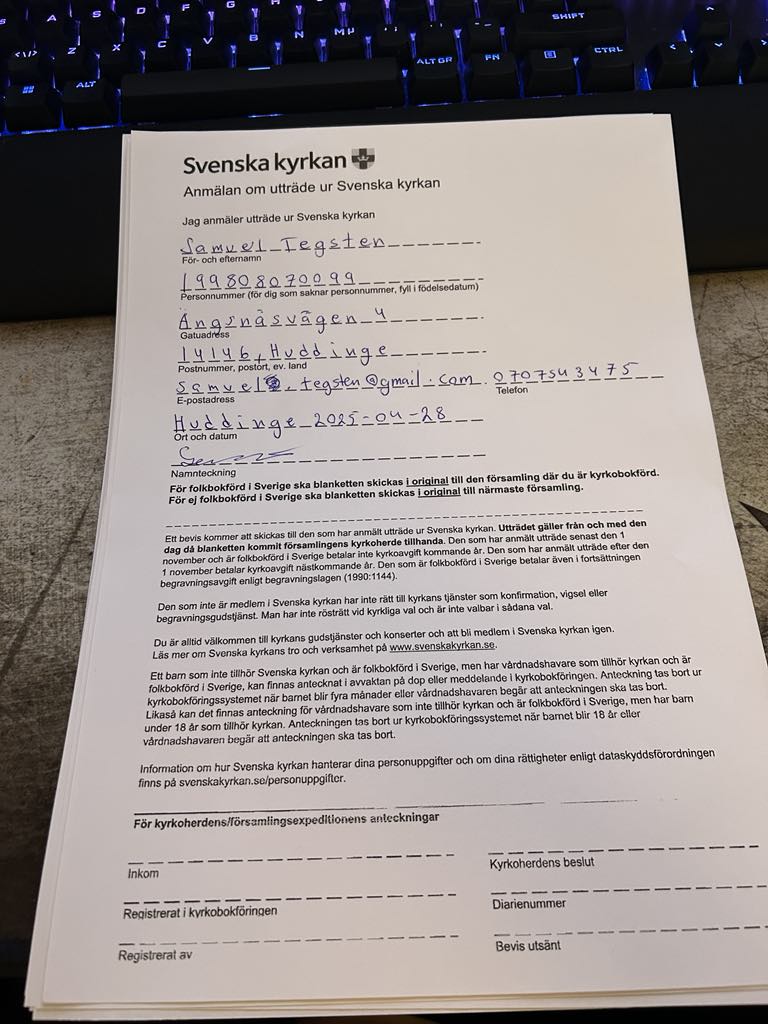 A S D F G H
<\|/> Z X C V B N Mµ SHIFT
ALT ALT GR FN CTRL
Svenska kyrkan
Anmälan om utträde ur Svenska kyrkan
Jag anmäler utträde ur Svenska kyrkan
Samuel Tegsten
För- och efternamn
199808070099
Personnummer (för dig som saknar personnummer, fyll i födelsedatum)
Ängsnäsvägen 4
Gatuadress
14146, Huddinge
Postnummer, postort, ev. land
samuel.tegsten@gmail.com 0707543475
E-postadress Telefon
Huddinge 2025-04-28
Ort och datum
Namnteckning
För folkbokförd i Sverige ska blanketten skickas i original till den församling där du är kyrkobokförd.
För ej folkbokförd i Sverige ska blanketten skickas i original till närmaste församling.
Ett bevis kommer att skickas till den som har anmält utträde ur Svenska kyrkan. Utträdet gäller från och med den
dag då blanketten kommit församlingens kyrkoherde tillhanda. Den som har anmält utträde senast den 1
november och är folkbokförd i Sverige betalar inte kyrkoavgift kommande år. Den som har anmält utträde efter den
1 november betalar kyrkoavgift nästkommande år. Den som är folkbokförd i Sverige betalar även i fortsättningen
begravningsavgift enligt begravningslagen (1990:1144).
Den som inte är medlem i Svenska kyrkan har inte rätt till kyrkans tjänster som konfirmation, vigsel eller
begravningsgudstjänst. Man har inte rösträtt vid kyrkliga val och är inte valbar i sådana val.
Du är alltid välkommen till kyrkans gudstjänster och konserter och att bli medlem i Svenska kyrkan igen.
Läs mer om Svenska kyrkans tro och verksamhet på www.svenskakyrkan.se.
Ett barn som inte tillhör Svenska kyrkan och är folkbokförd i Sverige, men har vårdnadshavare som tillhör kyrkan och är
folkbokförd i Sverige, kan finnas antecknat i avvaktan på dop eller meddelande i kyrkobokföringen. Anteckning tas bort ur
kyrkobokföringssystemet när barnet blir fyra månader eller vårdnadshavaren begär att anteckningen ska tas bort.
Likaså kan det finnas anteckning för vårdnadshavare som inte tillhör kyrkan och är folkbokförd i Sverige, men har barn
under 18 år som tillhör kyrkan. Anteckningen tas bort ur kyrkobokföringssystemet när barnet blir 18 år eller
vårdnadshavaren begär att anteckningen ska tas bort.
Information om hur Svenska kyrkan hanterar dina personuppgifter och om dina rättigheter enligt dataskyddsförordningen
finns på svenskakyrkan.se/personuppgifter.
För kyrkoherdens/församlingsexpeditionens anteckningar
Inkom Kyrkoherdens beslut
Registrerat i kyrkobokföringen Diarienummer
Registrerat av Bevis utsänt